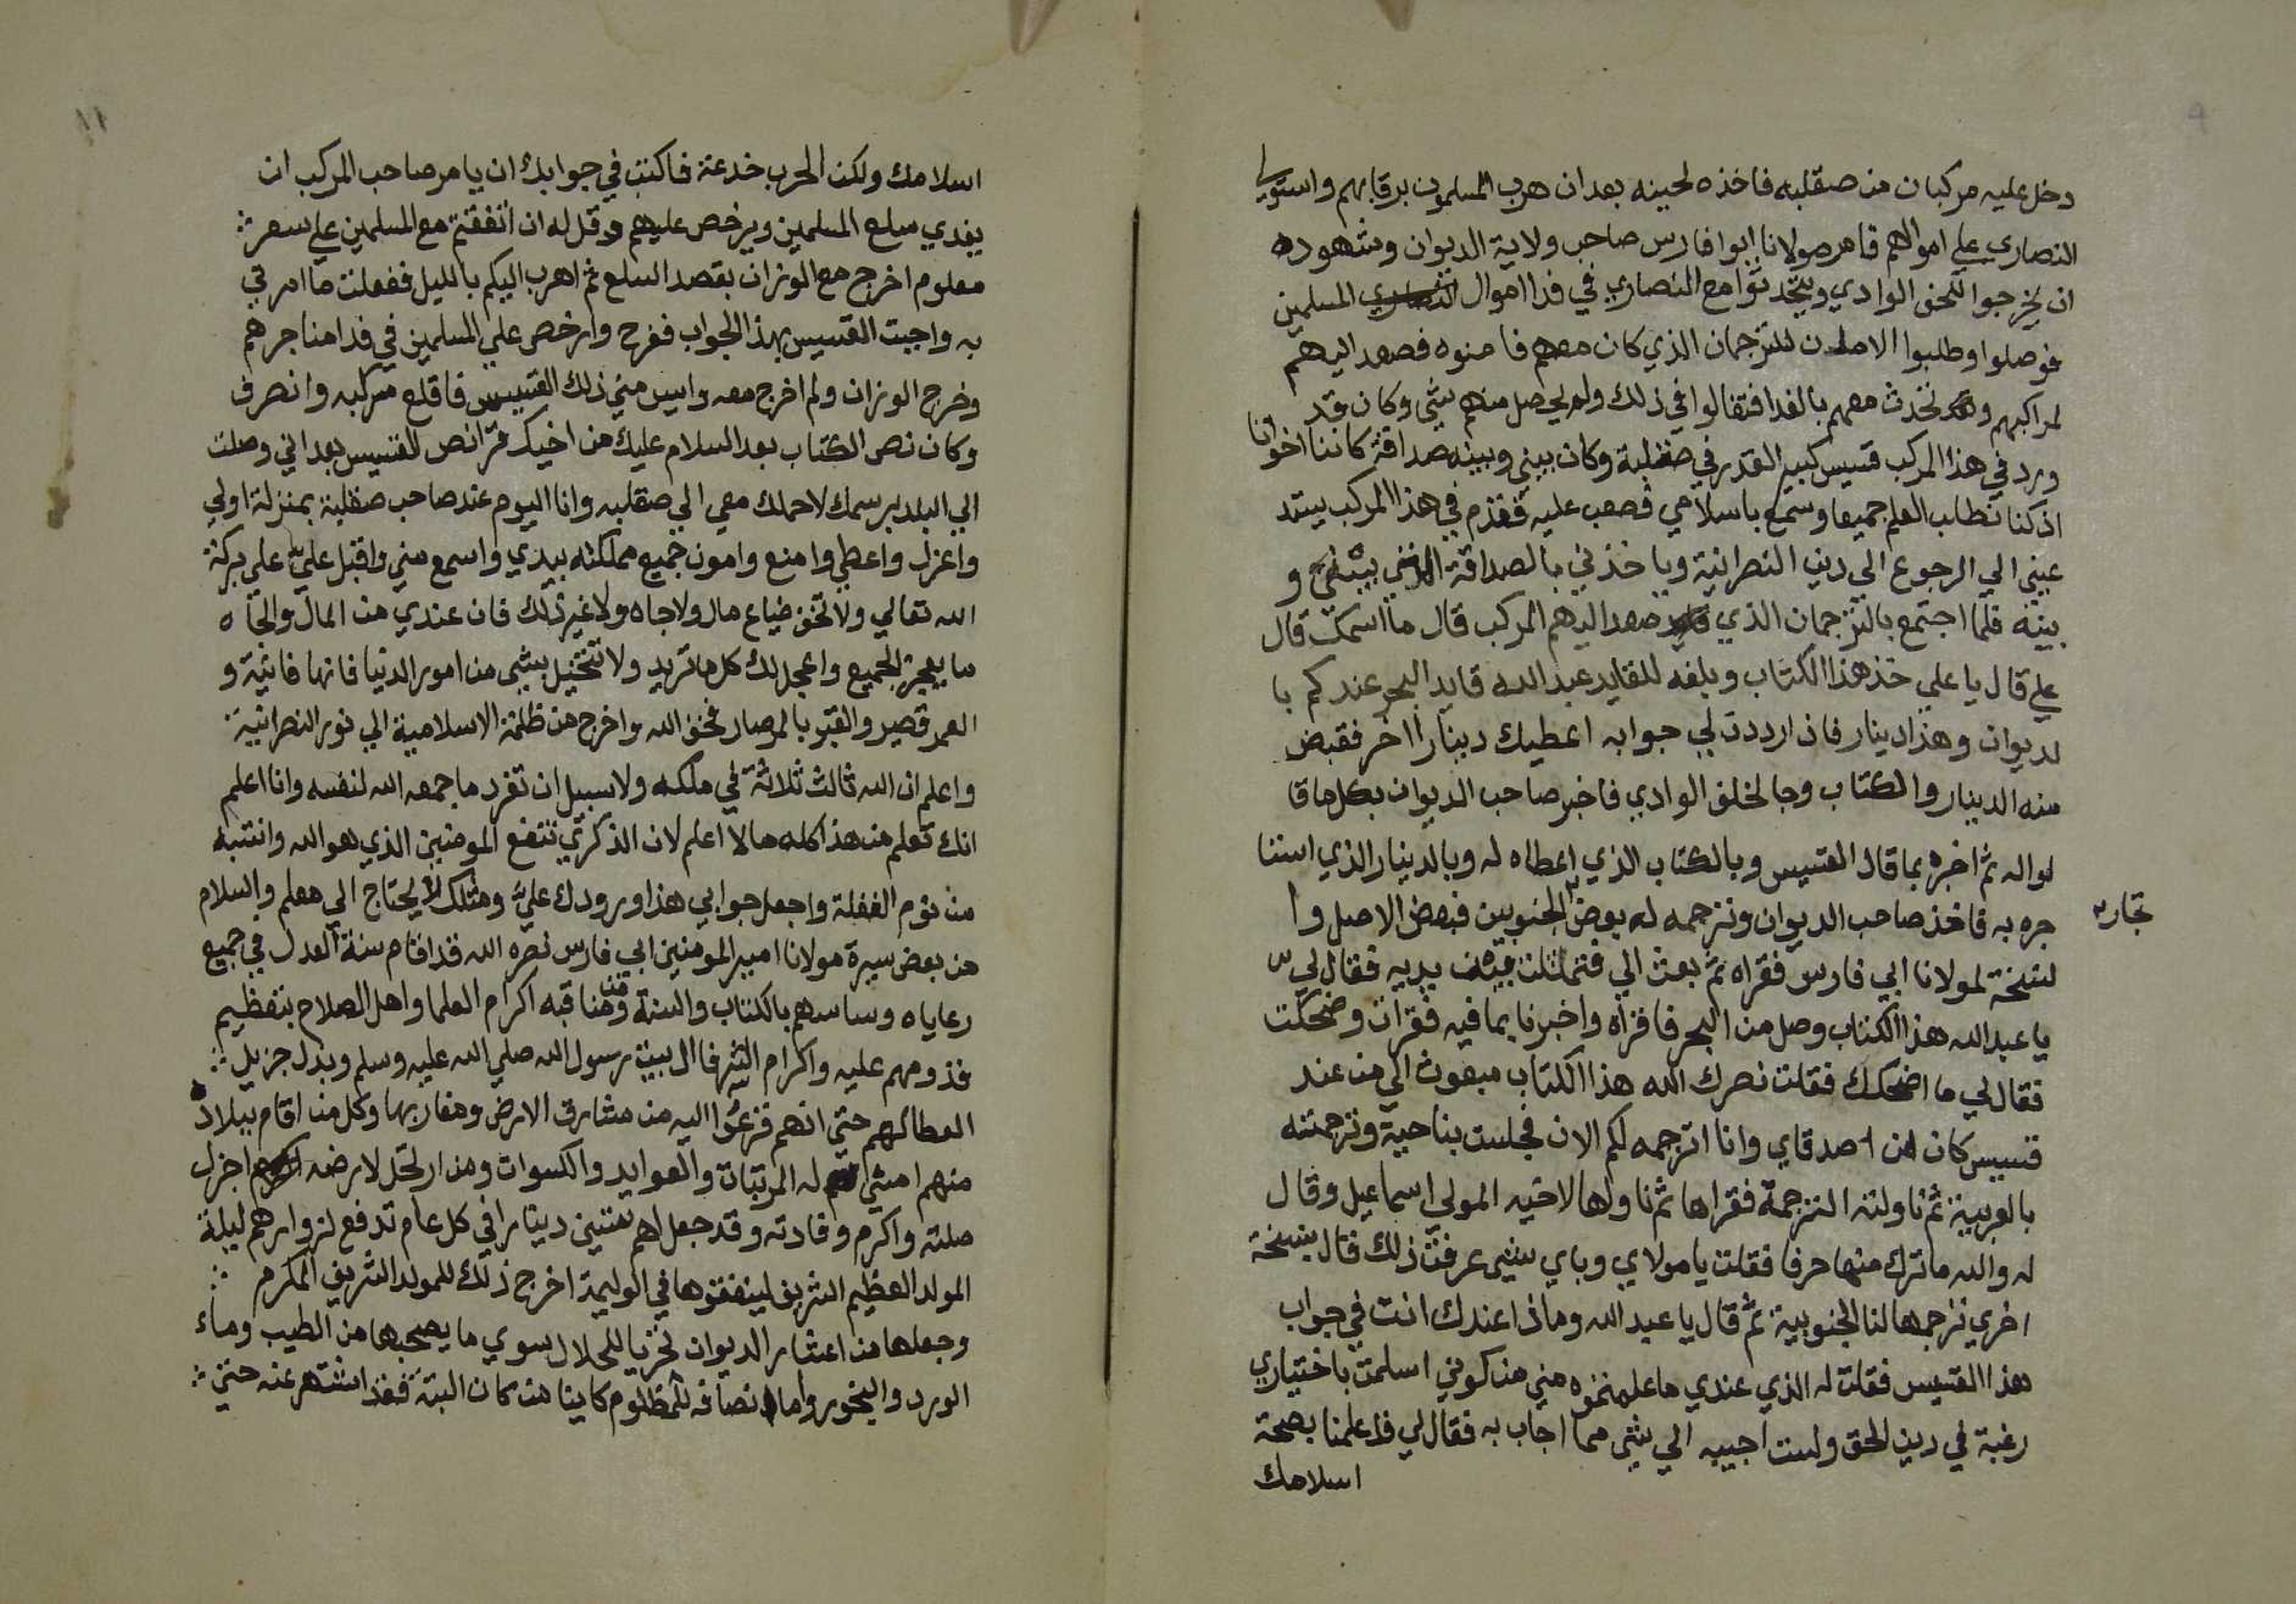 ٩
دخل عليه مركبان من صقليه فاخذه لحينه بعد ان هرب المسلمون برقابهم واستولي
النصاري علي اموالهم فامر مولانا ابوا فارس صاحب ولاية الديوان وشهوده
ان يخرجوا لحق الوادي ويتحدثوا مع النصاري في فدا اموال المسلمين
فوصلوا وطلبوا الامان للترجمان الذي كان معهم فامنوه فصعد اليهم
لمراكبهم وتحدث معهم بالفدا فتغالوا في ذلك ولم يحصل منهم شي وكان قد
ورد في هذا المركب قسيس كبير القدر في صقلية وكان بيني وبينه صداقة كاننا اخوانا
اذ كنا نطلب العلم جميعا وسمع باسلامي فصعب عليه فقدم في هذا المركب يستد
عيني الي الرجوع الي دين النصرانية وياخذني بالصداقة التي بيني و
بينه فلما اجتمع بالترجمان الذي صعد اليهم المركب قال ما اسمك قال
علي قال يا علي خذ هذا الكتاب وبلغه للقايد عبد الله قايد البحر عندكم با
لديوان وهذا دينار فان ارددت لي جوابه اعطيك دينارا اخر فقبض
منه الدينار والكتاب وجا لخلق الوادي فاخبر صاحب الديوان بكل ما قا
لوا له ثم اخبره بما قال القسيس وبالكتاب الذي اعطاه له وبالدينار الذي استا
جره به فاخذ صاحب الديوان وترجمه له بعض الجنويين فبعض الاصل وا
تجار
لنسخة لمولانا ابي فارس فقراه ثم بعث الي فتمثلت بين يديه فقال لي
يا عبد الله هذا الكتاب وصل من البحر فاقراه واخبرنا بما فيه فقرات وضحكت
فقال لي ما اضحكك فقلت نصرك الله هذا الكتاب مبعوث الي من عند
قسيس كان من اصدقاي وانا اترجمه لكم الان فجلست بناحية وترجمته
بالعربية ثم ناولته الترجمة فقراها ثم ناولها لاخيه المولي اسماعيل وقال
له والله ما ترك منها حرفا فقلت يا مولاي وباي شي عرفت ذلك قال بنسخة
اخري ترجمها لنا الجنويية ثم قال يا عبد الله وماذا عندك انت في جواب
هذا القسيس فقلت له الذي عندي ما علمتموه مني من كوني اسلمت باختياري
رغبة في دين الحق ولست اجيبه الي شي مما اجاب به فقال لي قد اعلمنا بصحة
اسلامك
١١
اسلامك ولكن الحرب خدعة فاكتب في جوابك ان يامر صاحب المركب ان
يفدي سلع المسلمين ويرخص عليهم وقل له ان اتفقتم مع المسلمين علي سعر
معلوم اخرج مع الوزان بقصد السلع ثم اهرب اليكم بالليل ففعلت ما امرني
به واجبت القسيس بهذا الجواب ففرح وارخص علي المسلمين في فدا متاجرهم
وخرج الوزان ولم اخرج معه وايس مني ذلك القسيس فاقلع مركبه وانصرف
وكان نص الكتاب بعد السلام عليك من اخيك فرانص القسيس بعد اني وصلت
الي البلد برسمك لاحملك معي الي صقليه وانا اليوم عند صاحب صقلية بمنزلة اولي
واعزل واعطي وامنع وامون جميع مملكته بيدي واسمع مني واقبل عليّ علي بركة
الله تعالي ولا تخف ضياع مال ولا جاه ولا غير ذلك فان عندي من المال والجاه
ما يعجز الجميع واعجل لك كل ما تريد ولا تتخيل بشي من امور الدنيا فانها فانية و
العمر قصير والقبر بالمرصاد فخف الله واخرج من ظلمة الاسلامية الي نور النصرانية
واعلم ان الله ثالث ثلاثة في ملكه ولا سبيل ان تفرد ما جمعه الله لنفسه وانا اعلم
انك تعلم من هذا كله ما لا اعلم لان الذكري تنفع المومنين الذي هو الله وانتبه
من نوم الغفلة واجعل جوابي هذا ورودك عليّ ومثلك لا يحتاج الي معلم والسلام
من بعض سيرة مولانا امير المومنين ابي فارس نصره الله قد اقام سنة العدل في جميع
رعاياه وساسهم بالكتاب والسنة ومن مناقبه اكرام العلما واهل الصلاح بتعظيم
قدومهم عليه واكرام الشرفا ال بيت رسول الله صلي الله عليه وسلم وبذل جزيل
العطا لهم حتي انهم فزعوا اليه من مشارق الارض ومغاربها وكل من اقام ببلاده
منهم امشي له المرتبات والعوايد والكسوات ومن ارتحل لارضه اجزل
صلته واكرم وفادته وقد جعل لهم دينارا في كل عام تدفع لزوارهم ليلة
المولد العظيم الشريف لينفقوها في الوليمة اخرج ذلك للمولد الشريف المكرم
وجعلها من اعشار الديوان تحريا للحلال سوي ما يصحبها من الطيب وماء
الورد والبخور واما انصافه للمظلوم كاينا من كان البتة فقد اشتهر عنه حتي